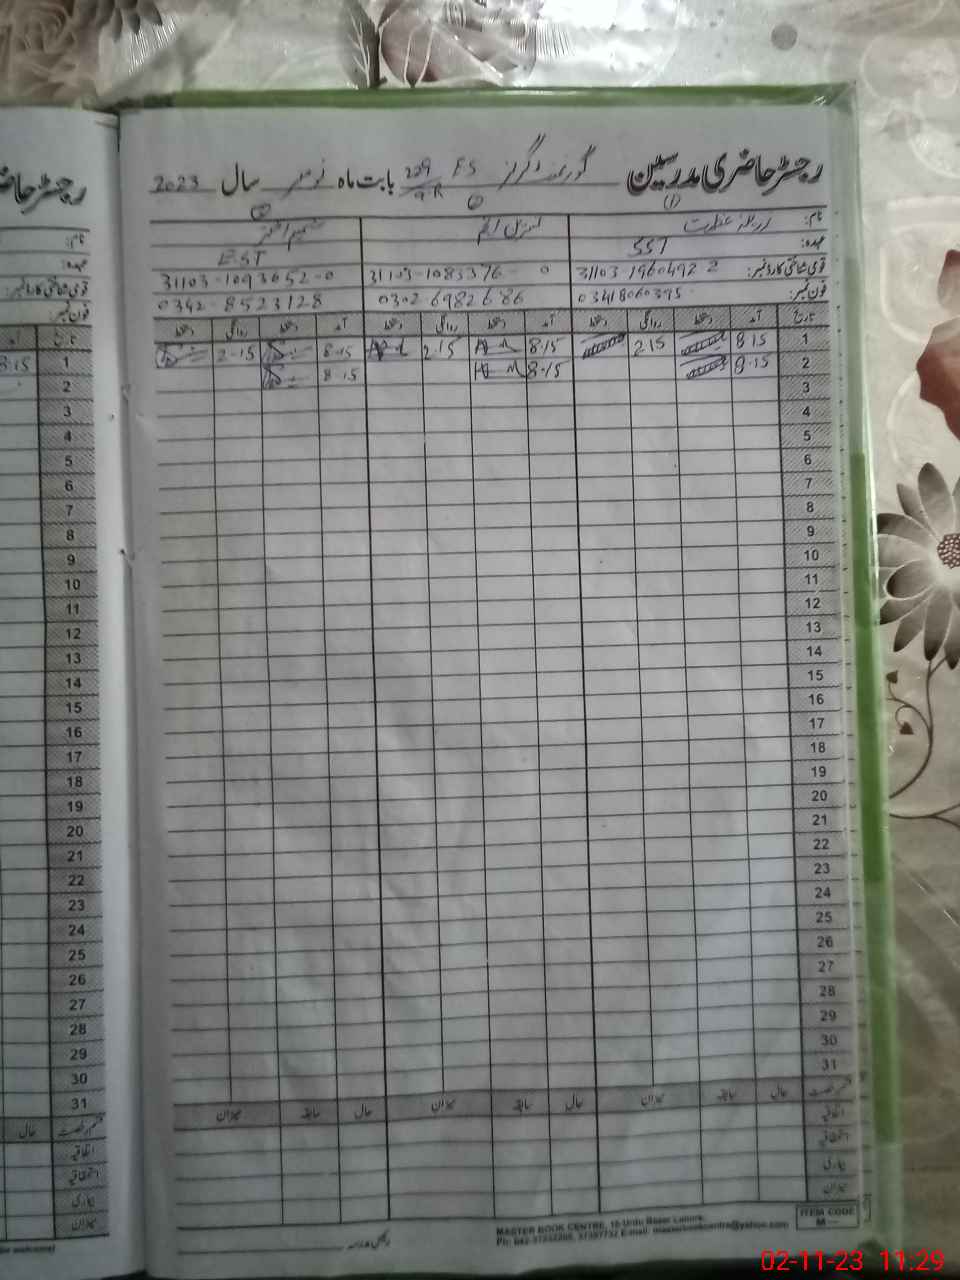 رجسٹر حاضری مدرسین گورنمنٹ گرلز ES 229/9R بابت ماہ نومبر سال 2023
(1)
نام:
شمیم اختر
عہدہ: SST
EST
قومی شناختی کارڈ نمبر: 31103-1960492 2
31103-1083376-0
31103-1093652-0
فون نمبر: 03418060395
0302-6982686
0342-8523128
تاریخ آمد دستخط روانگی دستخط آمد دستخط روانگی دستخط آمد دستخط روانگی دستخط
1 8.15 2.15 8.15 2.15 8.15 2.15
2 8.15 8.15 8.15
3
4
5
6
7
8
9
10
11
12
13
14
15
16
17
18
19
20
21
22
23
24
25
26
27
28
29
30
31
قسم رخصت حال سابقہ میزان حال سابقہ میزان حال سابقہ میزان
اتفاقیہ
استحقاقیہ
بیماری
میزان
رئیس مدرسہ
MASTER BOOK CENTRE, Urdu Bazar Lahore.
ITEM CODE
M
رجسٹر حا
نام:
عہدہ:
قومی شناختی کارڈ نمبر:
فون نمبر:
تاریخ
1 8.15
2
3
4
5
6
7
8
9
10
11
12
13
14
15
16
17
18
19
20
21
22
23
24
25
26
27
28
29
30
31
قسم رخصت حال
اتفاقیہ
استحقاقیہ
بیماری
میزان
02-11-23 11:29